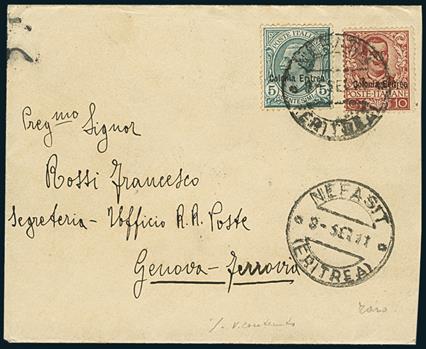 POSTE ITALIANE
Colonia Eritrea
5 CENTESIMI 5
Colonia Eritrea
POSTE ITALIANE
10
NEFASIT
(ERITREA)
Preg.mo Signor
Rossi Francesco
Segreteria - Ufficio R.R. Poste
Genova - Ferrovia
NEFASIT
3- SET 11
(ERITREA)
raro